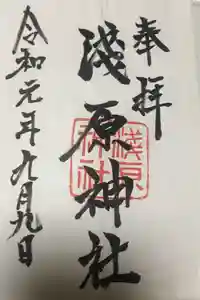 奉拝
淺原神社
淺原神社
令和元年九月九日